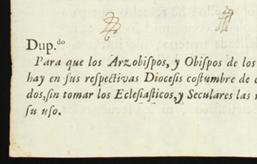 Dup.do
Para que los Arzobiſpos, y Obiſpos de los
hay en ſus reſpectivas Dioceſis coſtumbre de
dos, ſin tomar los Ecleſiaſticos, y Seculares las
ſu uſo.